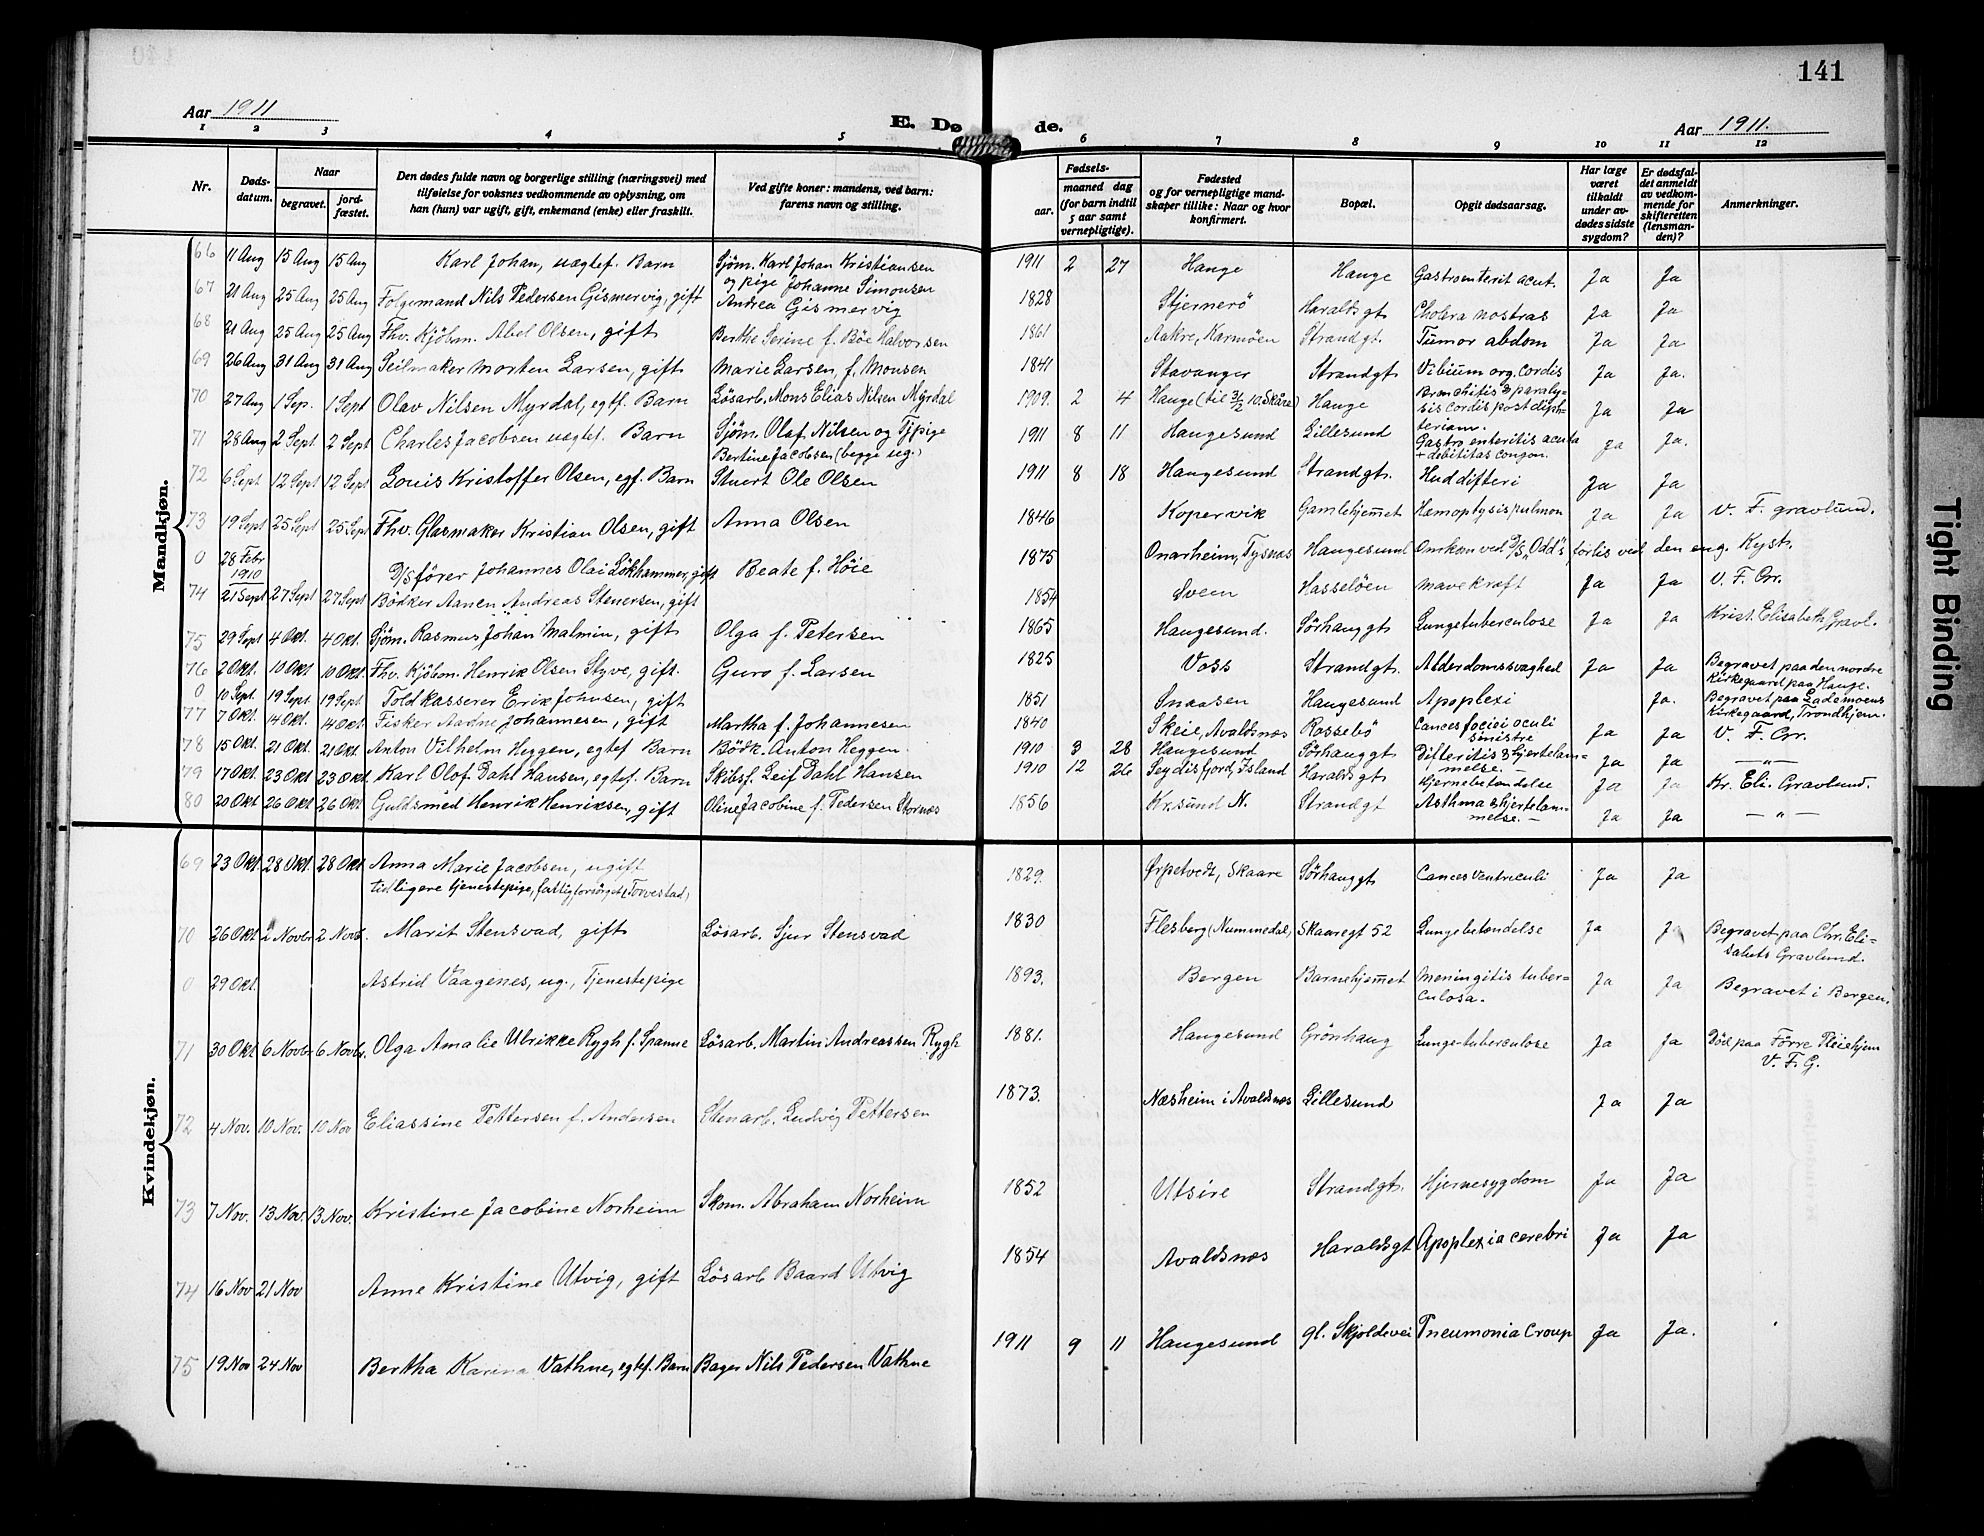 141
Aar 1911
E. Dø de.
Aar 1911.
1 2 3 4 5 6 7 8 9 10 11 12
Nr.
Døds-datum.
Naar
begravet.
jord-fæstet.
Den dødes fulde navn og borgerlige stilling (næringsvei) med
tilføielse for voksnes vedkommende av oplysning, om
han (hun) var ugift, gift, enkemand (enke) eller fraskilt.
Ved gifte koner: mandens, ved barn:
farens navn og stilling.
Fødsels-
aar.
maaned dag
(for barn indtil
5 aar samt
vernepligtige).
Fødested
og for vernepligtige mand-
skaper tillike: Naar og hvor
konfirmert.
Bopæl.
Opgit dødsaarsag.
Har læge
været
tilkaldt
under av-
dødes sidste
sygdom?
Er dødsfal-
det anmeldt
av vedkom-
mende for
skifteretten
(lensman-
den)?
Anmerkninger.
Mandkjøn.
66 11 Aug 15 Aug 15 Aug Karl Johan, uægtef. Barn Sjöm. Karl Johan Kristiansen og pige Johanne Simonsen 1911 2 27 Hauge Hauge Gastroenterit acut. Ja Ja
67 21 Aug 25 Aug 25 Aug Folgemand Nils Pedersen Gismervig, gift Andrea Gismervig 1828 Stjernerö Haraldsgt Cholera nostras Ja Ja
68 21 Aug 25 Aug 25 Aug Fhv. Kjöbm. Abel Olsen, gift Berthe Serine f. Böe Halvorsen 1861 Aakre, Karmöen Strandgt. Tumor abdom Ja Ja
69 26 Aug 31 Aug 31 Aug Seilmaker Morten Larsen, gift Marie Larsen, f. Monsen 1841 Stavanger Strandgt Vibium org. cordis Ja Ja.
70 27 Aug 1 Sep. 1 Sept Olav Nilsen Myrdal, egtf. Barn Lösarb. Mons Elias Nilsen Myrdal 1909. 2 4 Hauge (til 31/2 10. Skåre) Hauge Bronchitis & paraly-
sis cordis post diph-
teriam. Ja Ja
71 28 Aug 2 Sept 2 Sept Charles Jacobsen uægtef. Barn Sjöm. Olaf Nilsen og Tjpige
Bertine Jacobsen (begge ug.) 1911 8 11 Haugesund Lillesund Gastro enteritis acuta
+ debititas congon. Ja Ja.
72 6 Sept 12 Sept 12 Sept Louis Kristoffer Olsen, egf. Barn Stuert Ole Olsen 1911 8 18 Haugesund Strandgt. Huddifteri Ja Ja
73 19 Sept 25 Sept 25 Sept Fhv. Glasmaker Kristian Olsen, gift Anna Olsen 1846 Kopervik Gamlehjemet Hemoptysis pulmon Ja Ja V. F. gravlund.
0 28 Febr 1910 D/S förer Johannes Olai Lökhammer, gift Beate f. Höie 1875 Onarheim, Tysnæs Haugesund Omkom ved D/S, Odd's forlis ved den eng. Kyst.
74 21 Sept 27 Sept 27 Sept Bödker Aanen Andreas Stenersen, gift 1854 Sveen Hasselöen mavekræft Ja Ja V. F. Gr.
75 29 Sept 4 Okt. 4 Okt. Sjöm. Rasmus Johan Malmin, gift Olga f. Petersen 1865 Haugesund. Sörhauggt Lungetuberculose Ja Ja Krist. Elisabeth Gravl.
76 2 Okt. 10 Okt 10 Okt Fhv. Kjöbm. Henrik Olsen Styve, gift. Guro f. Larsen 1825 Voss Strandgt. Alderdomssvaghed Ja Ja Begravet paa den nordre
Kirkegaard paa Hauge.
0 10 Sept. 19 Sept 19 Sept. Toldkasserer Erik Johnsen, gift 1851 Snaasen Haugesund Apoplexi Ja. Begravet paa Lademoens
Kirkegaard, Trondhjem.
77 7 Okt. 14 Okt. 14 Okt. Fisker Aadne Johannesen, gift Martha f. Johannesen 1840 Skeie, Avaldsnæs Rossebö Cances faciei oculi
sinistre Ja Ja V. F. Gr.
78 15 Okt. 21 Okt. 21 Okt. Anton Vilhelm Heggen, egtef Barn Bödk. Anton Heggen 1910 3 28 Haugesund Sörhauggt Difteritis & hjertelam-
melse. Ja Ja — " —
79 17 Okt. 23 Okt 23 Okt. Karl Olof Dahl Hansen, egtef. Barn Skibsf. Leif Dahl Hansen 1910 12 26 Seydisfjord, Island Haraldsgt Hjernebetændelse Ja Ja Kr. Eli. Gravlund.
80 20 Okt 26 Okt 26 Okt. Guldsmed Henrik Henriksen, gift Oline Jacobine f. Pedersen Stornæs 1856 Kr.sund N. Strandgt Asthma & hjertelam-
melse. Ja Ja — " —
Kvindekjøn.
69 23 Okt. 28 Okt. 28 Okt Anna Marie Jacobsen, ugift
tidligere tjenestepige, fattigforsörget, Torvestad, 1829. Ørpetvedt, Skaare Sörhauggt Cances ventriculi Ja Ja
70 26 Okt 2 Novbr 2 Novb. Marit Stensvad, gift Lösarb. Sjur Stensvad 1830 Flesberg (Nummedal, Skaaregt 52 Lungebetændelse Ja Ja Begravet paa Chr. Eli-
sabets Gravlund.
0 29 Okt. Astrid Vaagenes, ug., Tjenestepige 1893. Bergen Barnehjemet Meningitis tuber-
culosa. Ja Ja Begravet i Bergen.
71 30 Okt 6 Novbr 6 Novbr. Olga Amalie Ulrikke Rygh f. Spanne Lösarb. Martin Andreassen Rygh 1881. Haugesund Grönhaug Lunge-tuberculose Ja Ja Död paa Förre Pleiehjem
V. F. G.
72 4 Nov. 10 Nov. 10 Nov Eliassine Pettersen f. Andersen Stenarb. Ludvig Pettersen 1873. Næsheim i Avaldsnæs Lillesund Ja Ja
73 7 Nov. 13 Nov. 13 Nov. Kristine Jacobine Norheim Skom. Abraham Norheim 1852 Utsire Strandgt. Hjernesygdom Ja Ja
74 16 Nov 21 Nov Anne Kristine Utvig, gift Lösarb Baard Utvig 1854 Avaldsnæs Haraldsgt Apoplexia cerebri Ja Ja
75 19 Nov 24 Nov Bertha Karina Vathne, egtef. Barn Bager Nils Pedersen Vathne 1911 9 11 Haugesund gl. Skjoldevei Pneumonia Croup Ja Ja.
Tight Binding